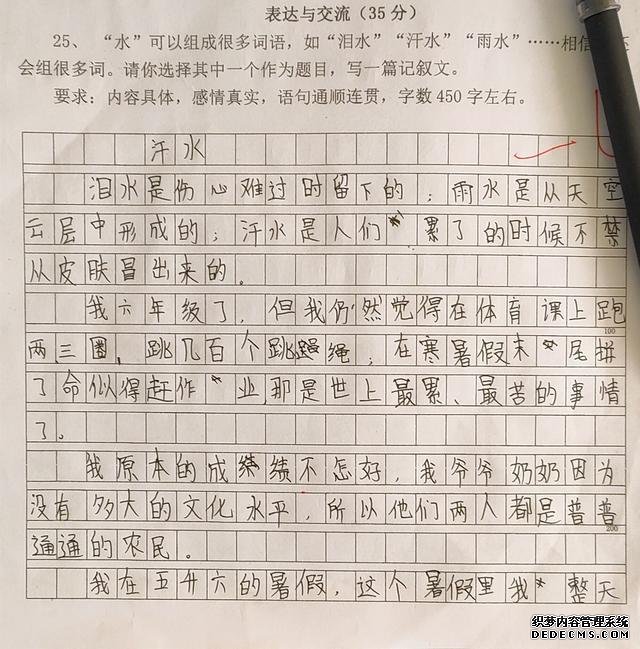 表达与交流（35分）
25、 “水”可以组成很多词语，如“泪水”“汗水”“雨水”……相信
会组很多词。请你选择其中一个作为题目，写一篇记叙文。
要求：内容具体，感情真实，语句通顺连贯，字数450字左右。
汗水
泪水是伤心难过时留下的；雨水是从天空
云层中形成的；汗水是人们累了的时候不禁
从皮肤冒出来的。
我六年级了，但我仍然觉得在体育课上跑
100
两三圈，跳几百个跳绳；在寒暑假末尾拼
了命似得赶作业，那是世上最累、最苦的事情
了。
我原本的成绩不怎好，我爷爷奶奶因为
没有多大的文化水平，所以他们两人都是普普
200
通通的农民。
我在五升六的暑假，这个暑假里我整天
织梦内容管理系统
DEDECMS.COM